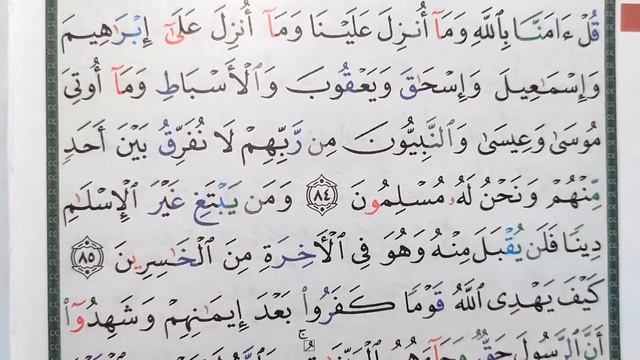 قُلْ ءَامَنَّا بِٱللَّهِ وَمَآ أُنزِلَ عَلَيْنَا وَمَآ أُنزِلَ عَلَىٰٓ إِبْرَٰهِيمَ
وَإِسْمَٰعِيلَ وَإِسْحَٰقَ وَيَعْقُوبَ وَٱلْأَسْبَاطِ وَمَآ أُوتِيَ
مُوسَىٰ وَعِيسَىٰ وَٱلنَّبِيُّونَ مِن رَّبِّهِمْ لَا نُفَرِّقُ بَيْنَ أَحَدٍ
مِّنْهُمْ وَنَحْنُ لَهُۥ مُسْلِمُونَ ٨٤ وَمَن يَبْتَغِ غَيْرَ ٱلْإِسْلَٰمِ
دِينًا فَلَن يُقْبَلَ مِنْهُ وَهُوَ فِي ٱلْأَخِرَةِ مِنَ ٱلْخَٰسِرِينَ ٨٥
كَيْفَ يَهْدِي ٱللَّهُ قَوْمًا كَفَرُوا۟ بَعْدَ إِيمَٰنِهِمْ وَشَهِدُوٓا۟
أَنَّ ٱلرَّسُولَ حَقٌّ وَجَآءَهُمُ